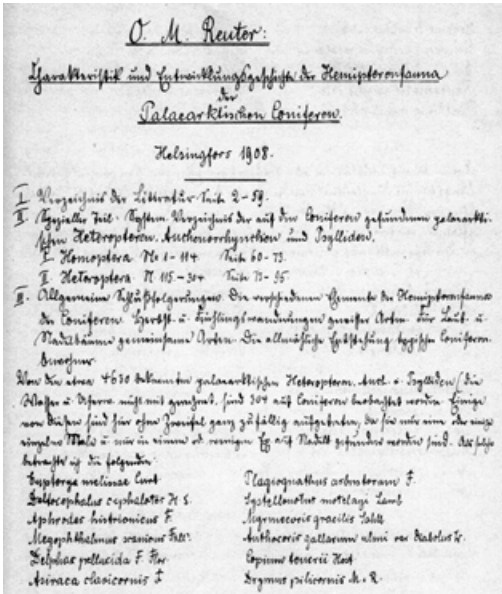 O. M. Reuter:
Charakteristik und Entwicklungsgeschichte der Hemipterenfauna
der
Palaearktischen Coniferen.
Helsingfors 1908.
I Verzeichnis der Litteratur Seite 2-59.
II Spezieller Teil. System. Verzeichnis der auf den Coniferen gefundenen palaearkti-
schen Heteropteren, Auchenorrhynchen und Psylliden.
I. Homoptera Nr 1-114 Seite 60-73.
II. Heteroptera N 115-304 Seite 73-95.
III. Allgemeine Schlußfolgerungen. Die verschiedenen Elemente der Hemipterenfauna
der Coniferen. Herbst- u. Frühlingswanderungen gewisser Arten. Für Laub- u.
Nadelbäume gemeinsame Arten. Die allmähliche Entstehung typischer Coniferen
bewohner.
Von den etwa 4630 bekannten palaearktischen Heteropteren, Auch. u. Psylliden (die
Wasser- u. Uferw. nicht mit gerechnet, sind 304 auf Coniferen beobachtet worden. Einige
von diesen sind hier ohne Zweifel ganz zufällig aufgetreten, da sie nur ein oder
einzelne Male u. nur in einem od. wenigen Ex auf Nadelh. gefunden worden sind. Als solche
betrachte ich die folgenden:
Eupteryx melissae Curt Plagiognathus arbustorum F.
Deltocephalus cephalotes H S. Systellonotus
Aphrodes histrionicus F. Myrmecoris gracilis Sahlb
Megophthalmus scanicus Fall. Anthocoris gallarum ulmi
Delphax pellucida F. Flor. Copium teucrii Host
Asiraca clavicornis F Drymus pilicornis M. R.